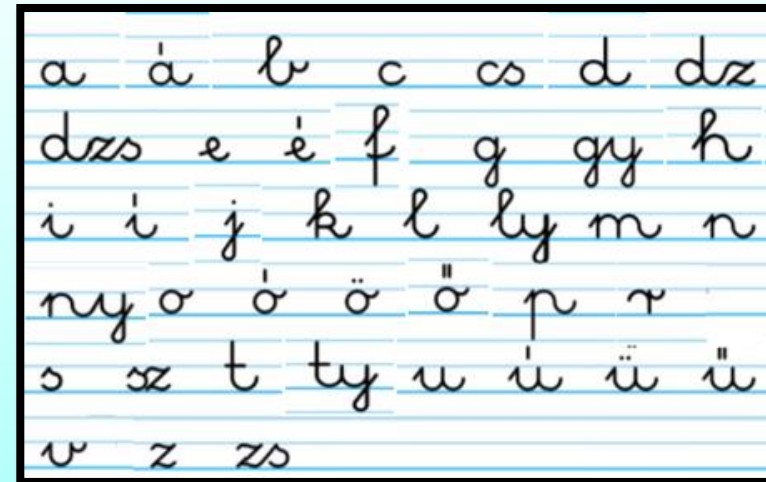 a á b c cs d dz
dzs e é f g gy h
i í j k l ly m n
ny o ó ö ő p r
s sz t ty u ú ü ű
v z zs